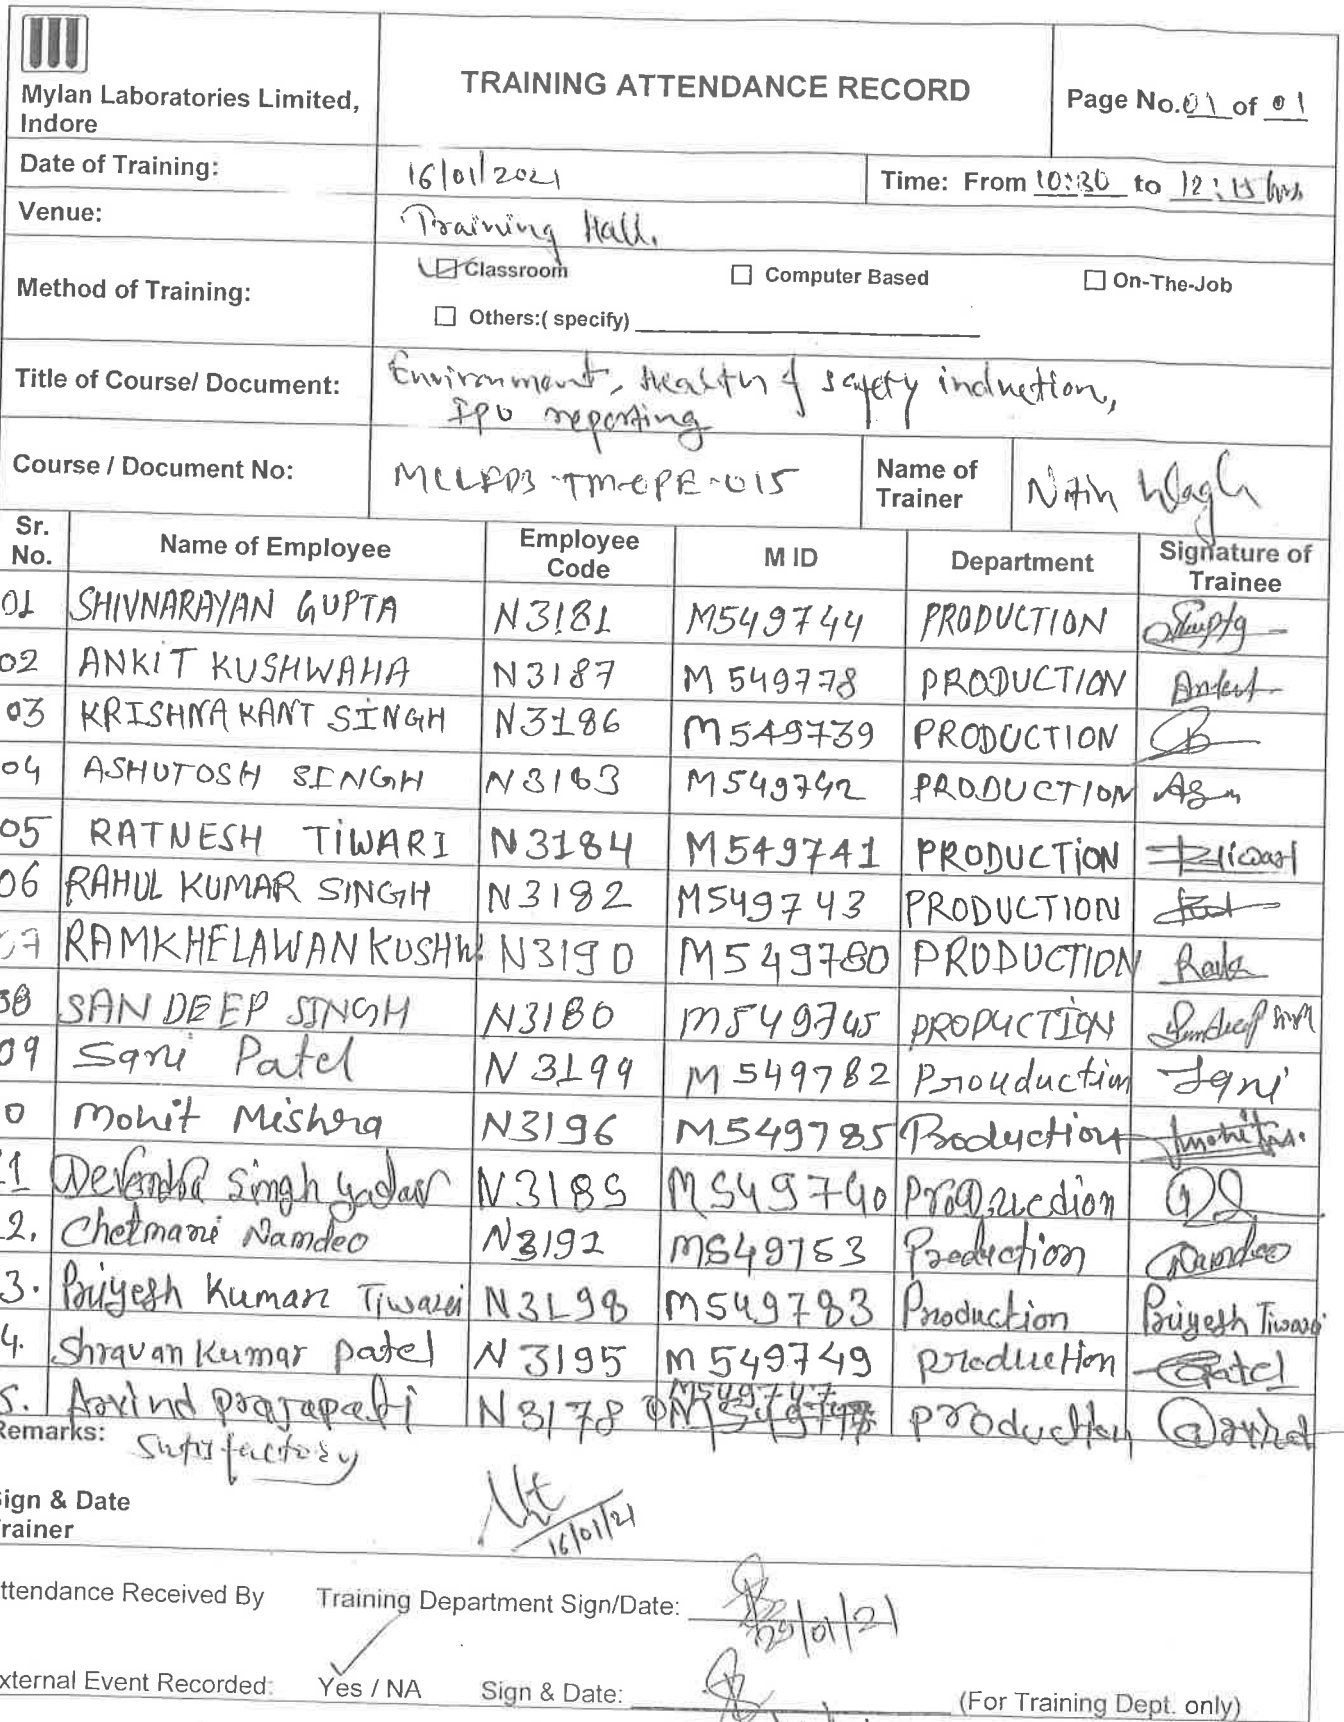 Mylan Laboratories Limited,
Indore
TRAINING ATTENDANCE RECORD
Page No. 01 of 01
Date of Training: 16/01/2021 Time: From 10:30 to 12:15 hrs
Venue: Training Hall.
Method of Training: Classroom Computer Based On-The-Job
Others:( specify)
Title of Course/ Document: Environment, Health & safety induction,
IPU reporting
Course / Document No: Name of Trainer Nitin Wagh
Sr. No. Name of Employee Employee Code M ID Department Signature of Trainee
01 SHIVNARAYAN GUPTA N3181 M549744 PRODUCTION Gupta
02 ANKIT KUSHWAHA N3187 M549778 PRODUCTION
03 KRISHNA KANT SINGH N3186 M549739 PRODUCTION
04 ASHUTOSH SINGH N3183 M549742 PRODUCTION
05 RATNESH TIWARI N3184 M549741 PRODUCTION
06 RAHUL KUMAR SINGH N3182 M549743 PRODUCTION
07 RAMKHELAWAN KUSHW N3190 M549780 PRODUCTION
08 SANDEEP SINGH N3180 M549745 PRODUCTION
09 Sani Patel N3199 M549782 Prouduction Sani
0 Mohit Mishra N3196 M549785 Production
1 Devendra Singh Yadav N3185 M549740 Production
2. Chetmani Namdeo N3192 Production Namdeo
3. Priyesh Kumar Tiwari N3198 M549783 Production Priyesh Tiwari
4. Shravan Kumar patel N3195 M549749 production Patel
5. Arvind prajapati N3178 M549747 production Arvind
Remarks: Satisfactory
Sign & Date
Trainer
16/01/21
ttendance Received By Training Department Sign/Date: /01/21
xternal Event Recorded: Yes / NA Sign & Date: (For Training Dept. only)